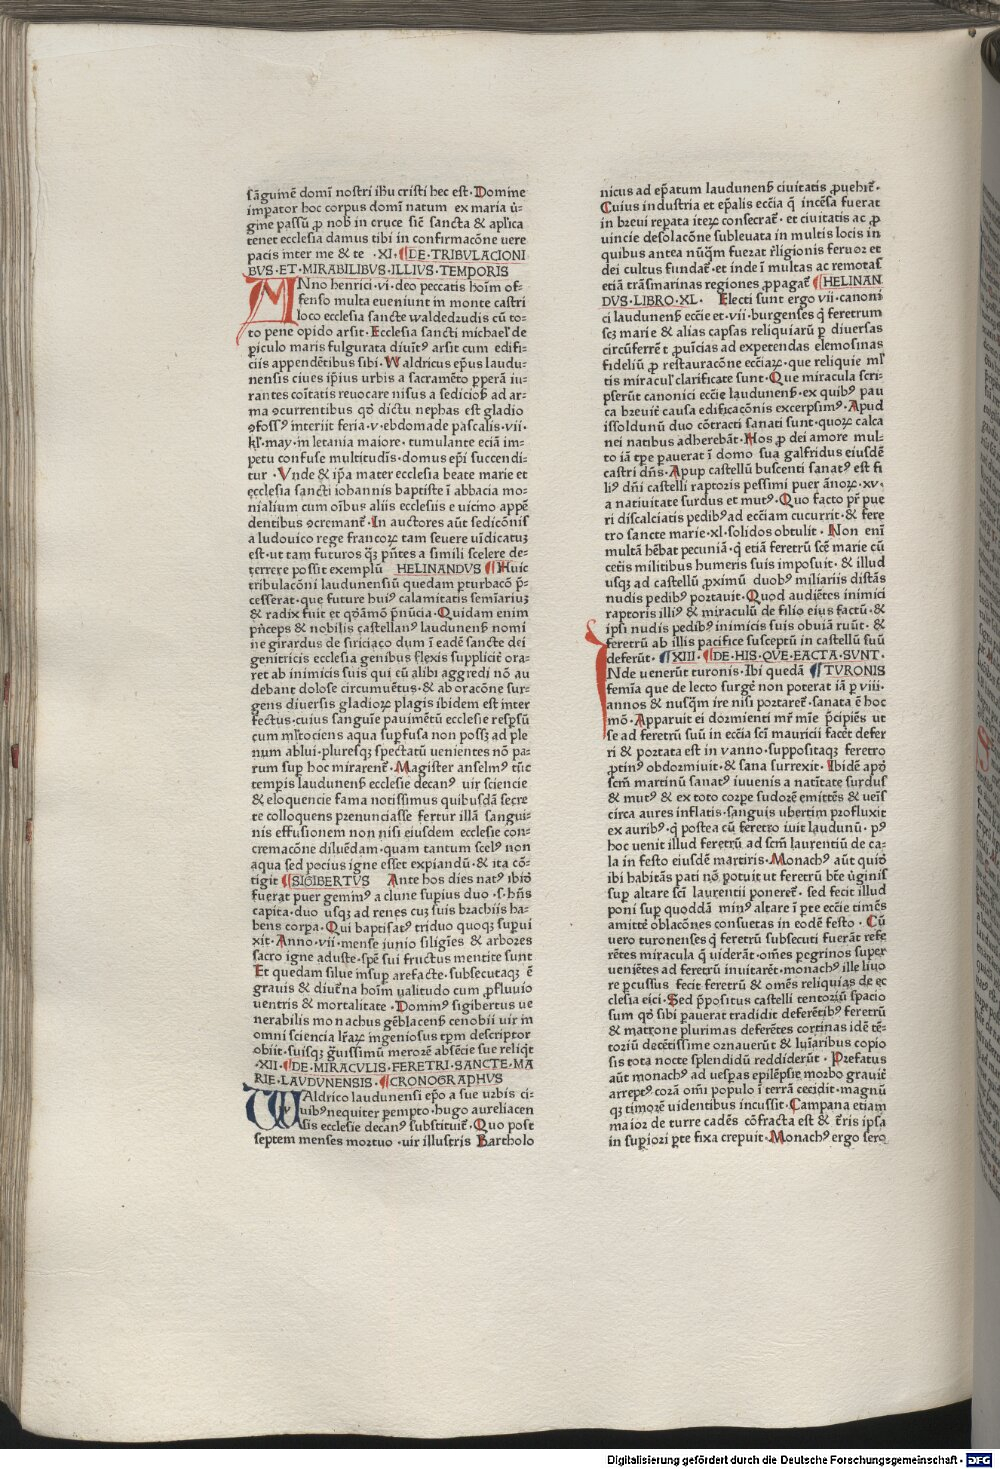 sāguinē domī nostri ihū cristi hec est·Domine
impator hoc corpus domī natum ex maria ūi-
gine passū ꝑ nob̄ in cruce sic̄ sancta & aplica
tenet ecclesia damus tibi in confirmacōne uere
pacis inter me & te ·XI· ¶DE·TRIBVLACIONI
BVS·ET·MIRABILIBVS·ILLIVS·TEMPORIS
ANno henrici·vi·deo peccatis hoīm of-
fenso multa eueniunt in monte castri
loco ecclesia sancte waldedrudis cū to-
to pene opido arsit·Ecclesia sancti michael' de
ꝑiculo maris fulgurata diuitꝰ arsit cum edifi-
ciis appendētibus sibi·Waldricus ep̄us laudu-
nensis ciues ip̄ius urbis a sacramēto ꝑperā iu-
rantes cōitatis reuocare nisus a sediciob̄ ad ar-
ma ꝯcurrentibus qō dictu nephas est gladio
ꝯfossꝰ interiit feria·v·ebdomade pascalis·vii·
kl'·may·in letania maiore·tumulante eciā im-
petu confuse multitudīs·domus epī succendi-
tur·Vnde & ip̄a mater ecclesia beate marie et
ecclesia sancti iohannis baptiste ī abbacia mo-
nialium cum oībus aliis ecclesiis e uicino appē
dentibus ꝯcremant̄·In auctores aūt sedicōnis
a ludouico rege francoꝝ tam seuere uīdicatuꝫ
est·ut tam futuros qꝫ p̄ntes a simili scelere de-
terrere possit exemplū HELINANDVS ¶Huic
tribulacōni laudunensiū quedam ꝑturbacō p̄-
cesserat·que future huiꝰ calamitatis semīariuꝫ
& radix fuit et qōāmō p̄nūcia·Quidam enim
p̄nceps & nobilis castellanꝰ laudunens̄ nomi
ne girardus de siriciaco dum ī eadē sancte dei
genitricis ecclesia genibus flexis supplicit̄ ora-
ret ab inimicis suis qui cū alibi aggredi nō au
debant dolose circumuētus·& ab oracōne sur-
gens diuersis gladioꝝ plagis ibidem est inter
fectus·cuius sanguīe pauimētū ecclesie respsū
cum ml'tociens aqua suꝑfusa non possꝫ ad ple
num ablui·pluresqꝫ spectatū uenientes nō pa-
rum suꝑ hoc mirarent̄·Magister anselmꝰ tūc
tempis laudunens̄ ecclesie decanꝰ uir sciencie
& eloquencie fama notissimus quibusdā secre
te colloquens prenunciasse fertur illā sangui-
nis effusionem non nisi eiusdem ecclesie con-
cremacōne diluēdam·quam tantum scelꝰ non
aqua sed pocius igne esset expiandū·& ita cō-
tigit ¶SIGIBERTVS Ante hos dies natꝰ ibiō
fuerat puer geminꝰ a clune supius duo·s·hn̄s
capita·duo usqꝫ ad renes cuꝫ suis brachiis ha-
bens corpa·Qui baptisatꝰ triduo quoqꝫ supui
xit·Anno·vii·mense iunio siligīes & arbores
sacro igne aduste·spē sui fructus mentite sunt
Et quedam silue insup arefacte·subsecutaqꝫ ē
grauis & diut̄na hoīm ualitudo cum ꝓfluuio
uentris & mortalitate·Dominꝰ sigibertus ue
nerabilis monachus gēblacens̄ cenobii uir in
omni sciencia lr̄aꝝ ingeniosus tp̄m descriptor
obiit·suisqꝫ g̊uissimū merorē absēcie sue reliqt
·XII·¶DE·MIRACVLIS·FERETRI·SANCTE·MA
RIE·LAVDVNENSIS·¶CRONOGRAPHVS
WAldrico laudunensi ep̄o a sue urbis ci-
uibꝰnequiter ꝑempto·hugo aureliacen
sis ecclesie decanꝰ substituit̄·Quo post
septem menses mortuo·uir illustris Bartholo
nicus ad ep̄atum laudunens̄ ciuitatis ꝓuehit̄·
Cuius industria et ep̄alis ecc̄ia q̄ incēsa fuerat
in breui repata iteꝝ consecrat̄·et ciuitatis ac ꝓ
uincie desolacōne subleuata in multis locis in
quibus antea nūqm̄ fuerat r̄ligionis feruor et
dei cultus fundat̄·et inde ī multas ac remotas
etiā trāsmarinas regiones ꝓpagat̄ ¶HELINAN
DVS·LIBRO·XL· Electi sunt ergo vii·canoni
ci laudunens̄ ecc̄ie et·vii·burgenses q̄ feretrum
sc̄ꝫ marie & alias capsas reliquiarū ꝑ diuersas
circūferrēt ꝓuīcias ad expetendas elemosinas
fideliū ꝑ restauracōne ecc̄iaꝝ·que reliquie ml'
tis miracul' clarificate sunt·Que miracula scri-
pserūt canonici ecc̄ie laudunens̄·ex quibꝰ pau
ca breuie causa edificacōnis excerpsimꝰ·Apud
issoldunū duo cōtracti sanati sunt·quoꝝ calca
nei natibus adherebāt·Hos ꝑ dei amore mul-
to iā tꝑe pauerat ī domo sua galfridus eiusdē
castri dn̄s·Apup castellū buscenti sanatꝰ est fi
liꝰ dn̄i castelli raptoris pessimi puer ānoꝝ·xv·
a natiuitate surdus et mutꝰ·Quo facto pr̄ pue
ri discalciatis pedibꝰ ad ecc̄iam cucurrit·& fere
tro sancte marie·xl·solidos obtulit·Non enī
multā hēbat pecuniā·q̄ etiā feretrū sc̄e marie cū
cetis militibus humeris suis imposuit·& illud
usqꝫ ad castellū ꝓximū duobꝰ miliariis distās
nudis pedibꝰ portauit·Quod audiētes inimici
raptoris illiꝰ & miraculū de filio eius factū·&
ip̄si nudis pedibꝰ inimicis suis obuiā ruūt·&
feretrū ab illis pacifice susceptū in castellū suū
deferūt·¶XIII·¶DE·HIS·QVE·FACTA·SVNT·
INde uenerūt turonis·Ibi quedā ¶TVRONIS
femīa que de lecto surgē non poterat iā ꝑ viii·
annos & nusqm̄ ire nisi portaret̄·sanata ē hoc
mō·Apparuit ei dormienti mr̄ mīe p̄cipiēs ut
se ad feretrū suū in ecc̄ia sc̄i mauricii facēt defer
ri & portata est in vanno·suppositaqꝫ feretro
ꝓtinꝰ obdormiuit·& sana surrexit·Ibidē apō
sc̄m martinū sanatꝰ iuuenis a natitate surdus
& mutꝰ & ex toto corpe sudorē emittēs & ueīs
circa aures inflatis·sanguis ubertim profluxit
ex auribꝰ·q̄ postea cū feretro iuit laudunū·pꝰ
hoc uenit illud feretrū ad sc̄m laurentiū de ca-
la in festo eiusdē martiris·Monachꝰ aūt quiō
ibi habitās pati nō potuit ut feretrū bt̄e ūginis
sup altare sc̄i laurentii poneret̄·sed fecit illud
poni sup quoddā minꝰ altare ī pte ecc̄ie timēs
amittē oblacōnes consuetas in eodē festo·Cū
uero turonenses q̄ feretrū subsecuti fuerāt refe
rētes miracula q̄ uiderāt·om̄es pegrinos super
ueniētes ad feretrū inuitarēt·monachꝰ ille liuo
re pcussus fecit feretrū & om̄es reliquias de ec
clesia eici·Sed p̄positus castelli tentoriū spacio
sum qō sibi pauerat tradidit deferētibꝰ feretrū
& matrone plurimas deferētes cortinas idē tē-
toriū decētissime ornauerūt & luīaribus copio
sis tota nocte splendidū reddiderūt·Prefatus
aūt monachꝰ ad uesꝑas epilēpsie morbo grauit̄
arreptꝰ corā om̄i populo ī terrā cecidit·magnū
qꝫ timorē uidentibus incussit·Campana etiam
maior de turre cadēs cōfracta est & t̄ris ipsa
in supiori pte fixa crepuit·Monachꝰ ergo sero
Digitalisierung gefördert durch die Deutsche Forschungsgemeinschaft - DFG